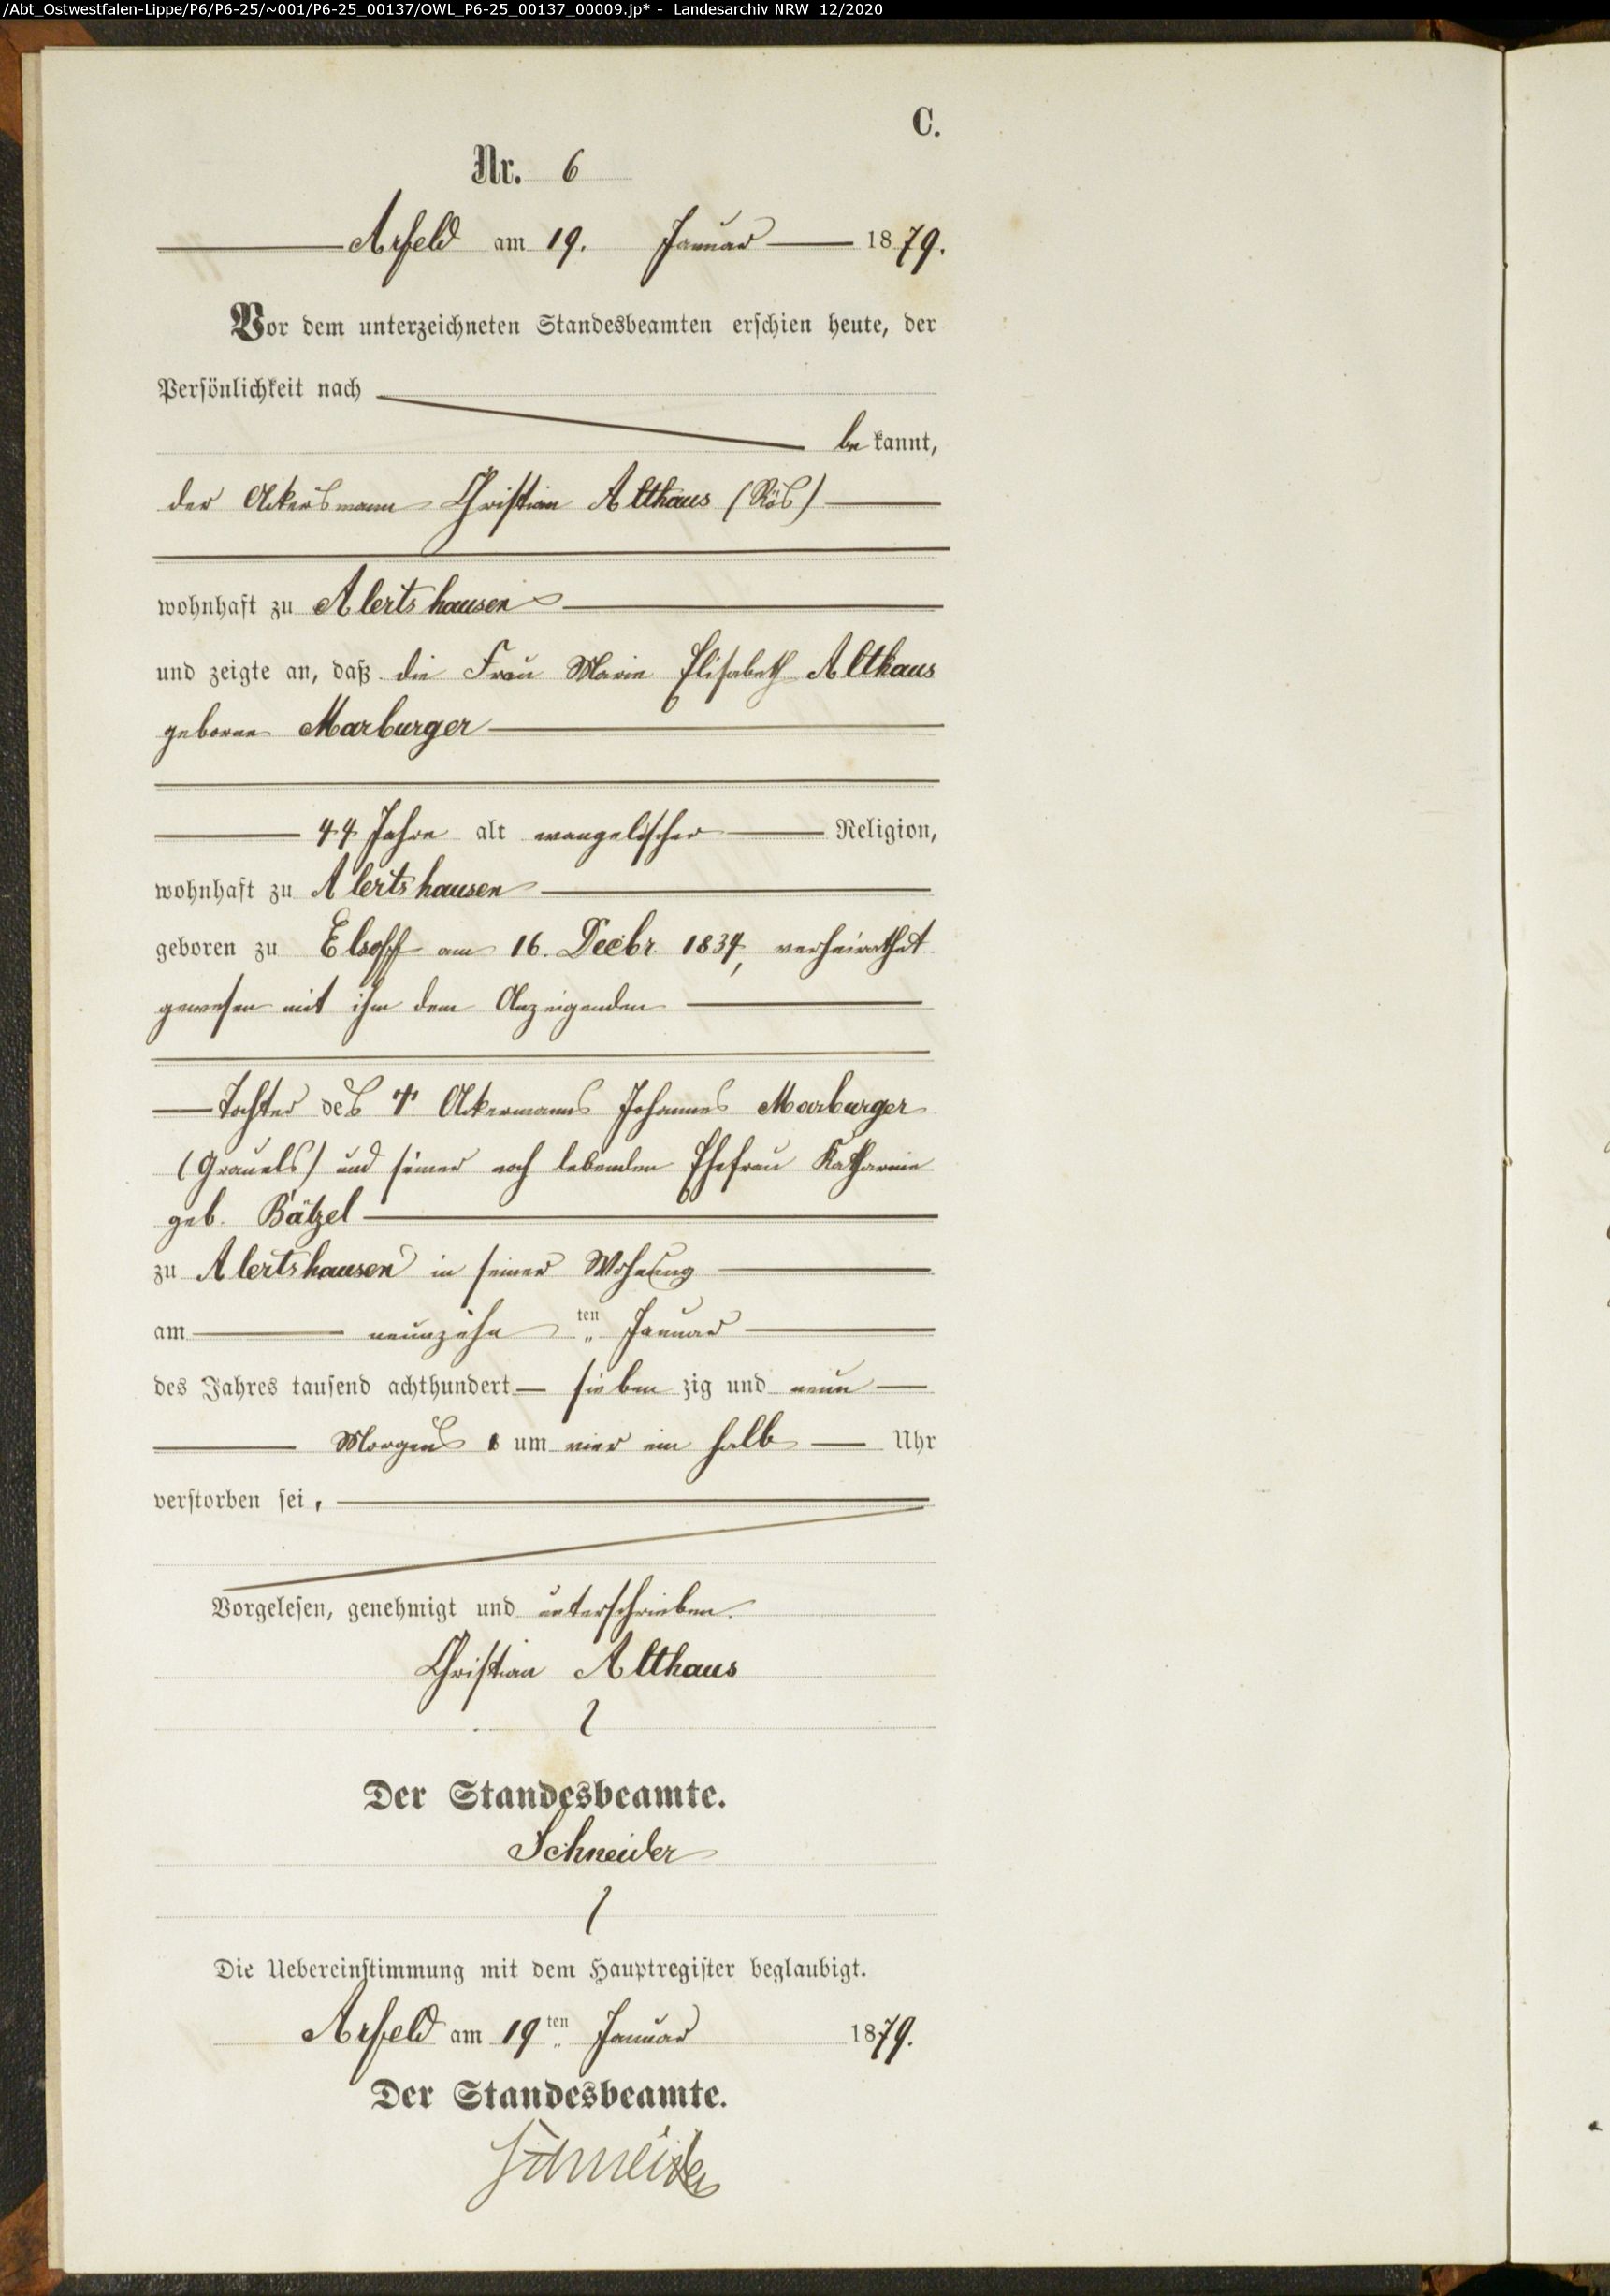 /Abt_Ostwestfalen-Lippe/P6/P6-25/~001/P6-25_00137/OWL_P6-25_00137_00009.jp* - Landesarchiv NRW 12/2020
C.
Nr. 6
Arfeld am 19. Januar 1879.
Vor dem unterzeichneten Standesbeamten erschien heute, der
Persönlichkeit nach
bekannt,
der Ackersmann Christian Althaus (Rös)
wohnhaft zu Alertshausen
und zeigte an, daß die Frau Marie Elisabeth Althaus
geborne Marburger
44 Jahre alt evangelischer Religion,
wohnhaft zu Alertshausen
geboren zu Elsoff am 16. Decbr 1834, verheirathet
gewesen mit ihm dem Anzeigenden
Tochter des † Ackermanns Johannes Marburger
(Grauels) und seiner noch lebenden Ehefrau Katharine
geb. Bätzel
zu Alertshausen in seiner Wohnung
am neunzehn ten Januar
des Jahres tausend achthundert sieben zig und neun
Morgens um vier ein halb Uhr
verstorben sei,
Vorgelesen, genehmigt und unterschrieben.
Christian Althaus
Der Standesbeamte.
Schneider
Die Uebereinstimmung mit dem Hauptregister beglaubigt.
Arfeld am 19ten Januar 1879.
Der Standesbeamte.
Schneider